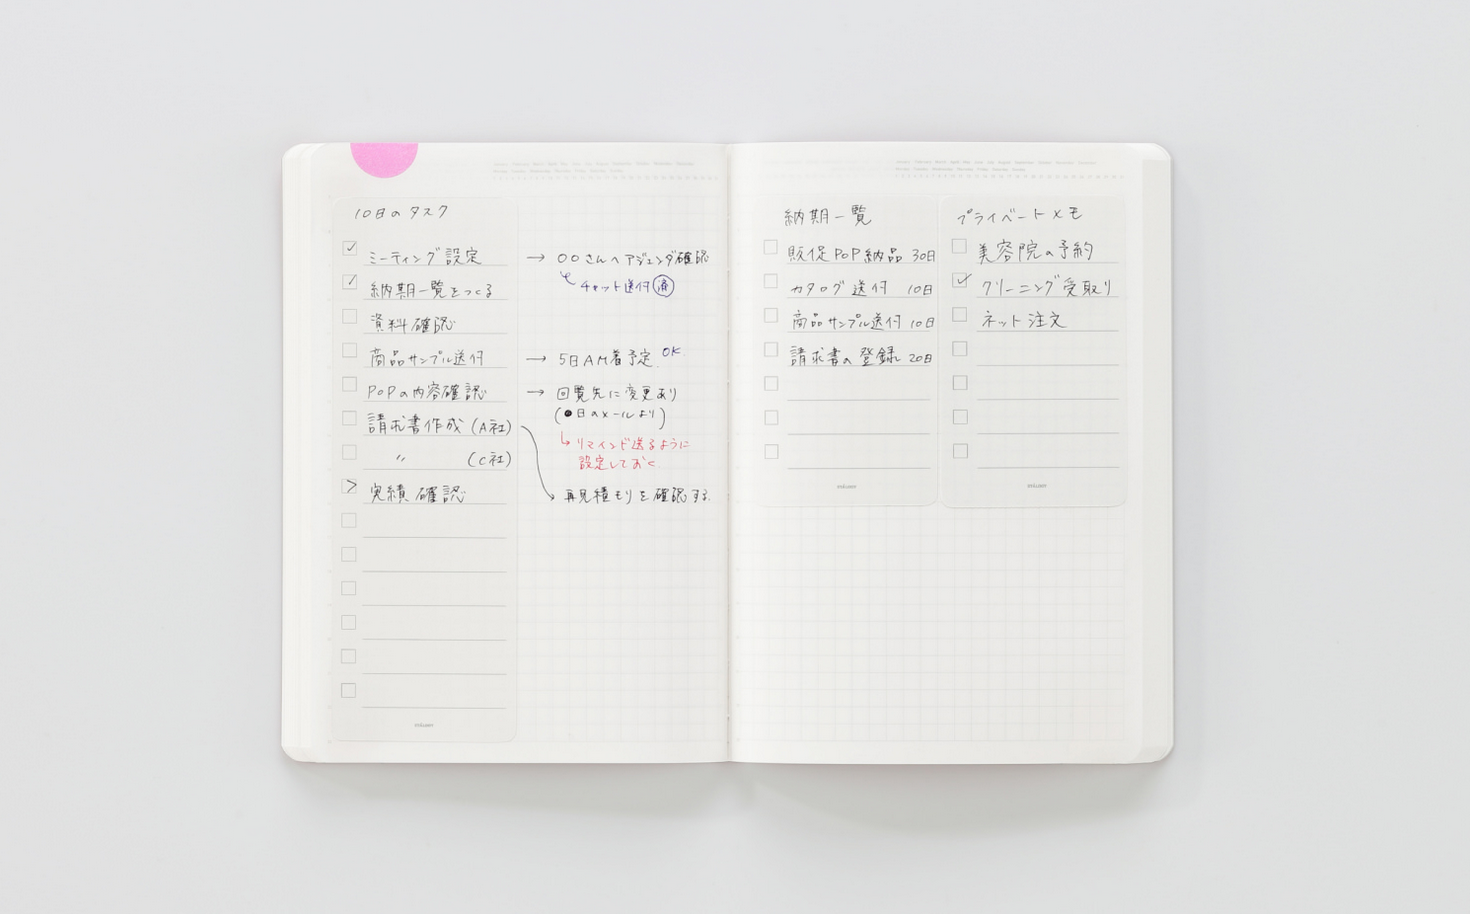 10日のタスク
ミーティング設定 → ○○さんへアジェンダ確認
チャット送付 済
納期一覧をつくる
資料確認
商品サンプル送付 → 5日AM着予定 OK
POPの内容確認 → 回覧先に変更あり
(●日のメールより)
請求書作成 (A社)
↳ リマインド送るように
設定しておく
〃 (C社)
実績確認
再見積もりを確認する
納期一覧
販促POP納品 30日
カタログ送付 10日
商品サンプル送付 10日
請求書の登録 20日
プライベートメモ
美容院の予約
クリーニング受取り
ネット注文